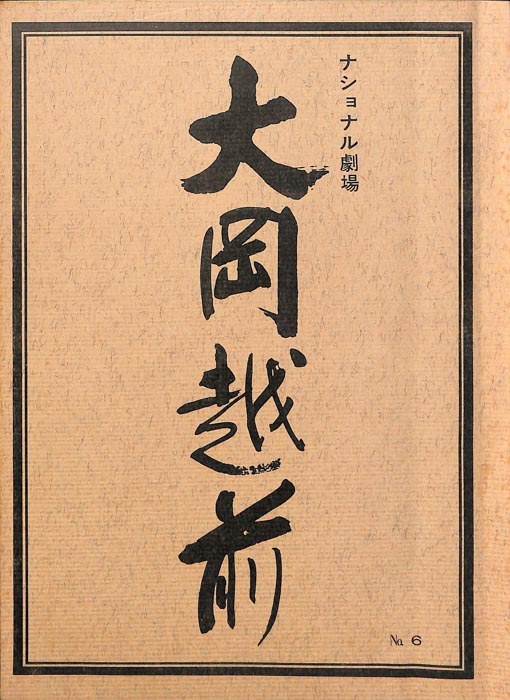 ナショナル劇場
大岡越前
№ 6